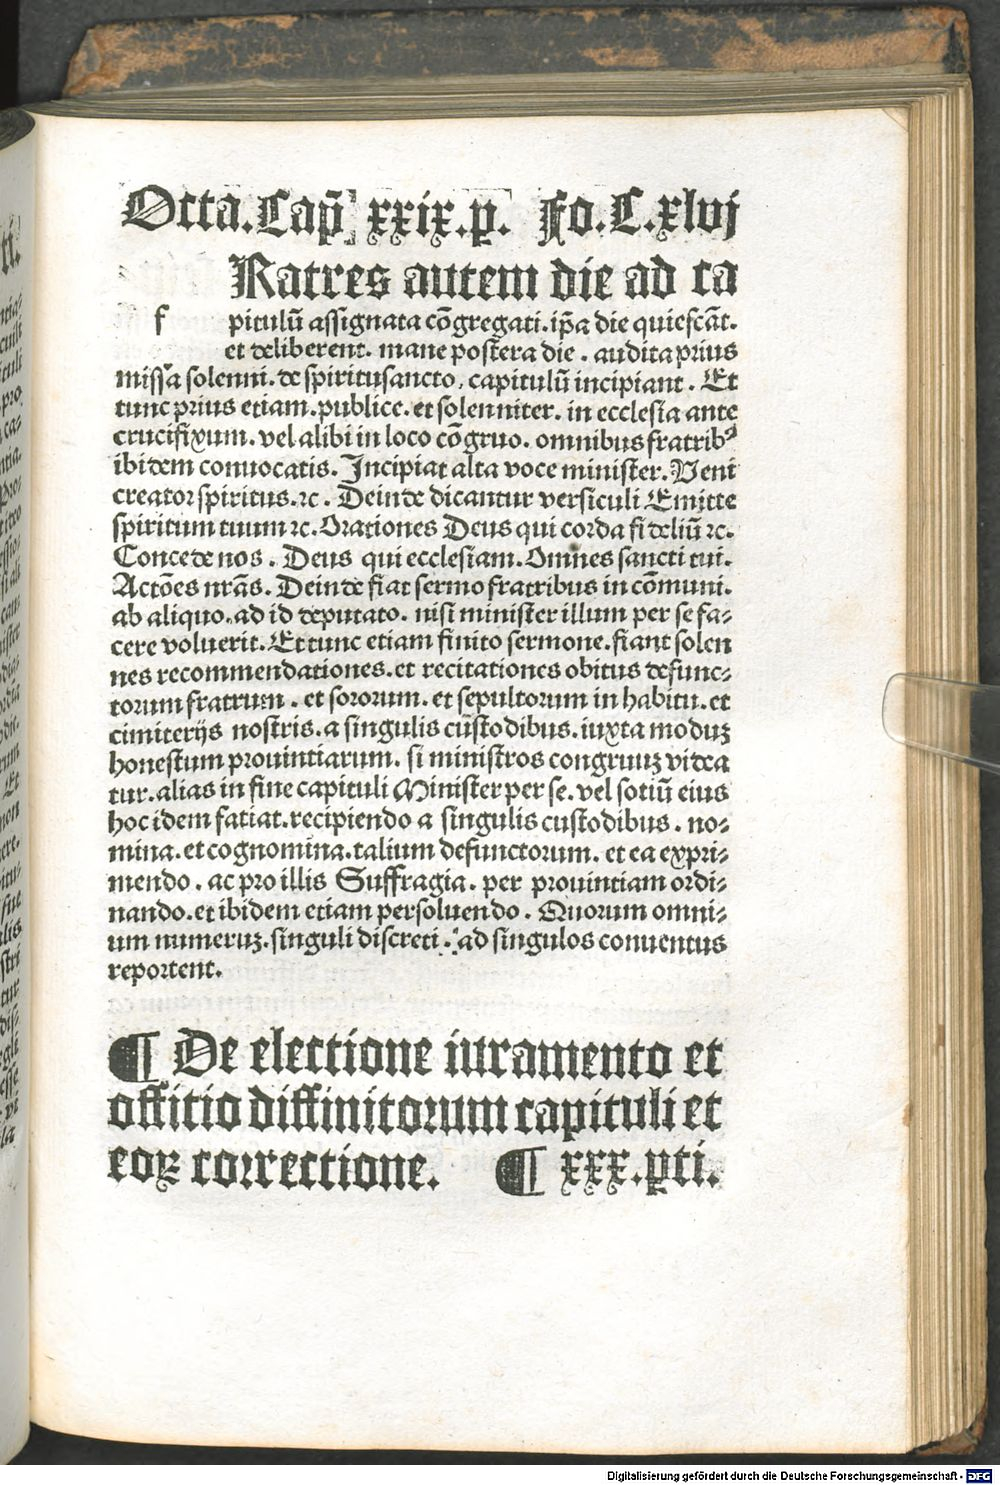 Octa. Cap̄ xxix. p. Fo. C. xlvj
Ratres autem die ad ca
f pitulū assignata cōgregati. ip̄a die quiescāt.
et deliberent. mane postera die. audita prius
missa solenni. de spiritusancto, capitulū incipiant. Et
tunc prius etiam. publice. et solenniter. in ecclesia ante
crucifixum. vel alibi in loco cōgruo. omnibus fratribꝰ
ibidem conuocatis. Incipiat alta voce minister. Veni
creator spiritus. ⁊c. Deinde dicantur versiculi Emitte
spiritum tuum ⁊c. Orationes Deus qui corda fideliū ⁊c.
Concede nos. Deus qui ecclesiam. Omnes sancti tui.
Actōes nr̄as. Deinde fiat sermo fratribus in cōmuni.
ab aliquo. ad id deputato. nisi minister illum per se fa⸗
cere voluerit. Et tunc etiam finito sermone. fiant solen
nes recommendationes. et recitationes obitus defunc⸗
torum fratrum. et sororum. et sepultorum in habitu. et
cimiterijs nostris. a singulis cūstodibus. iuxta moduꝫ
honestum prouintiarum. si ministros congruuꝫ videa
tur. alias in fine capituli Minister per se. vel sotiū eius
hoc idem fatiat. recipiendo a singulis custodibus. no⸗
mina. et cognomina. talium defunctorum. et ea expri⸗
mendo. ac pro illis Suffragia. per prouintiam ordi⸗
nando. et ibidem etiam persoluendo. Quorum omni⸗
um numeruꝫ. singuli discreti. ad singulos conuentus
reportent.
¶ De electione iuramento et
offitio diffinitorum capituli et
eoꝝ correctione. ¶ xxx. pti.
Digitalisierung gefördert durch die Deutsche Forschungsgemeinschaft - DFG